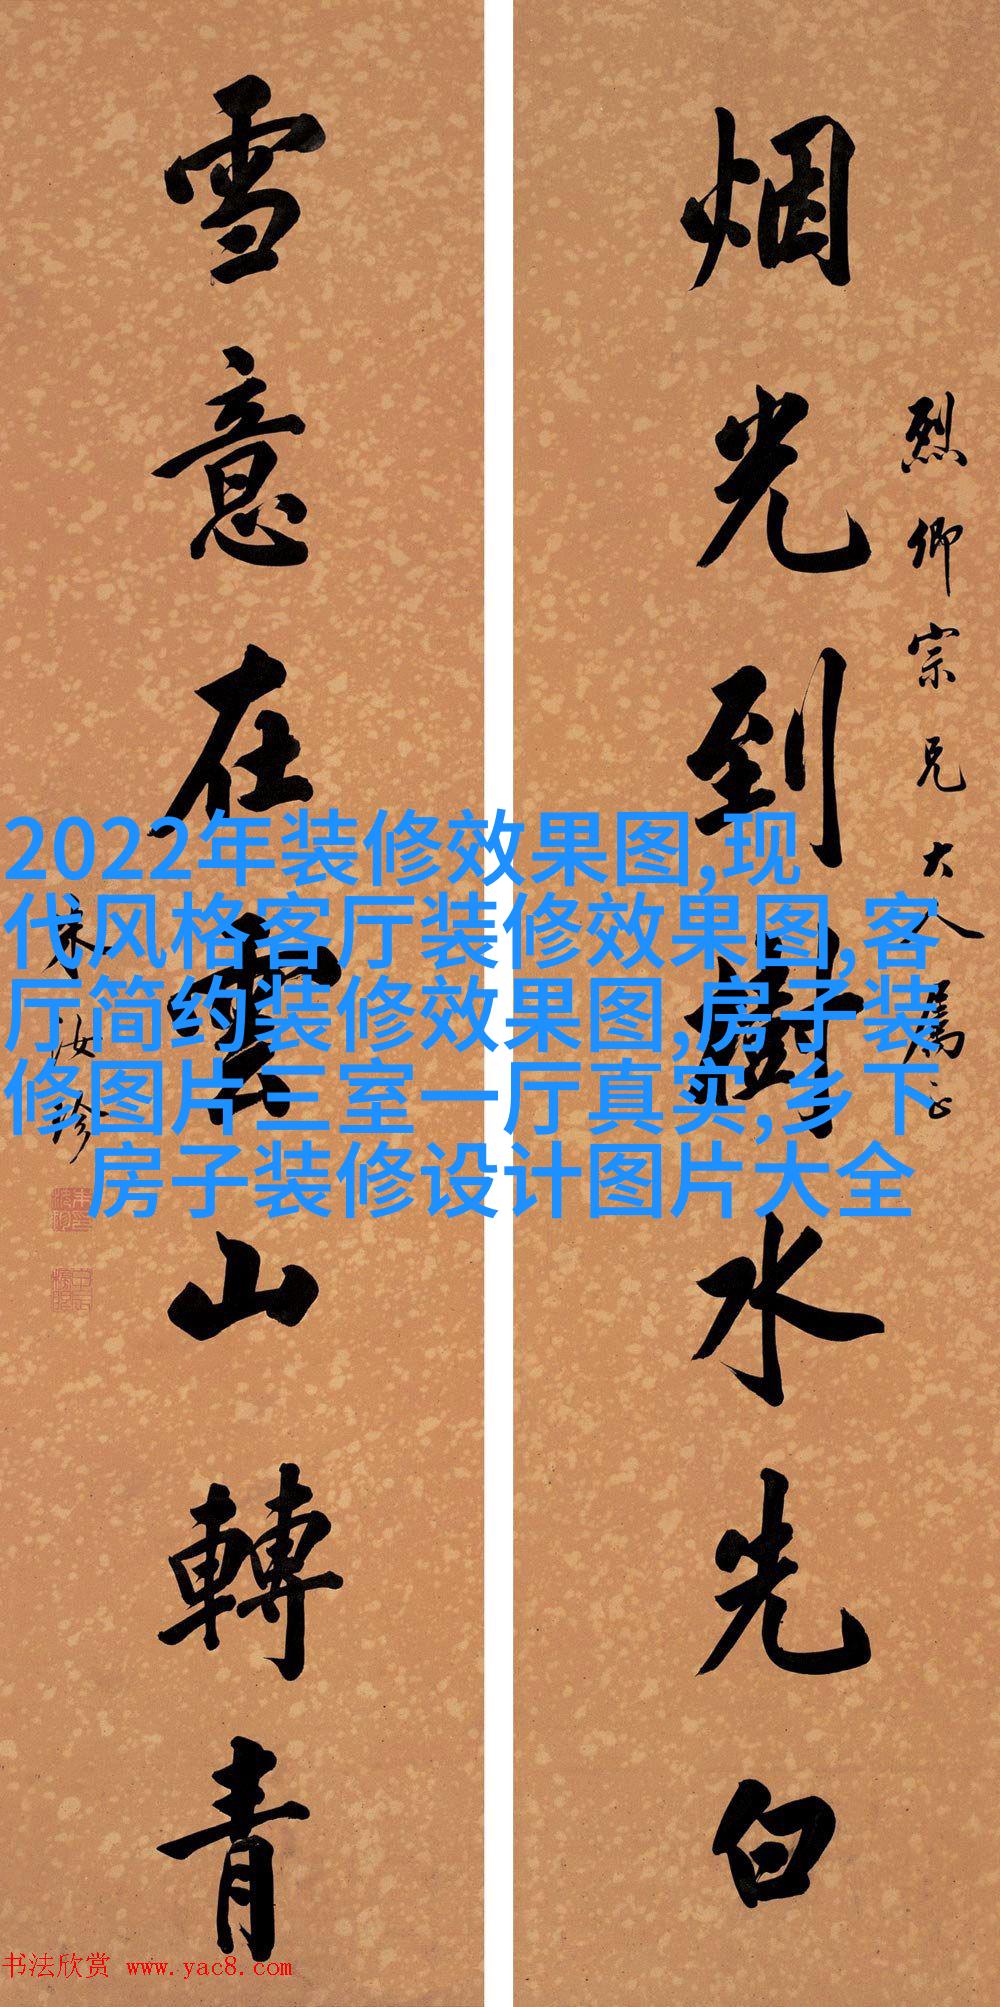 烟光到樹水先白
烈卿宗兄大人屬正
雪意在雲山轉青
朱汝珍
2022年装修效果图,现
代风格客厅装修效果图,客
厅简约装修效果图,房子装
修图片三室一厅真实,乡下
房子装修设计图片大全
书法欣赏 www.yac8.com